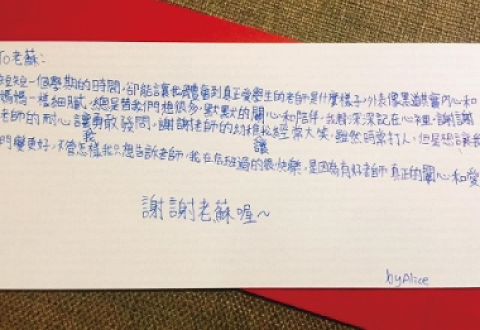 To老蘇：
短短一個學期的時間，卻能讓我體會到真正愛學生的老師是什麼樣子，外表像黑道其實內心和
媽媽一樣細膩，總是替我們想很多，默默的關心和陪伴，我都深深記在心裡，謝謝
老師的耐心讓我勇敢發問，謝謝老師的幼稚讓我經常大笑，雖然時常打人，但是想讓我
們變更好，不管怎樣我只想告訴老師，我在信班過的最快樂，是因為有好老師真正的關心和愛
謝謝老蘇喔～
by Alice